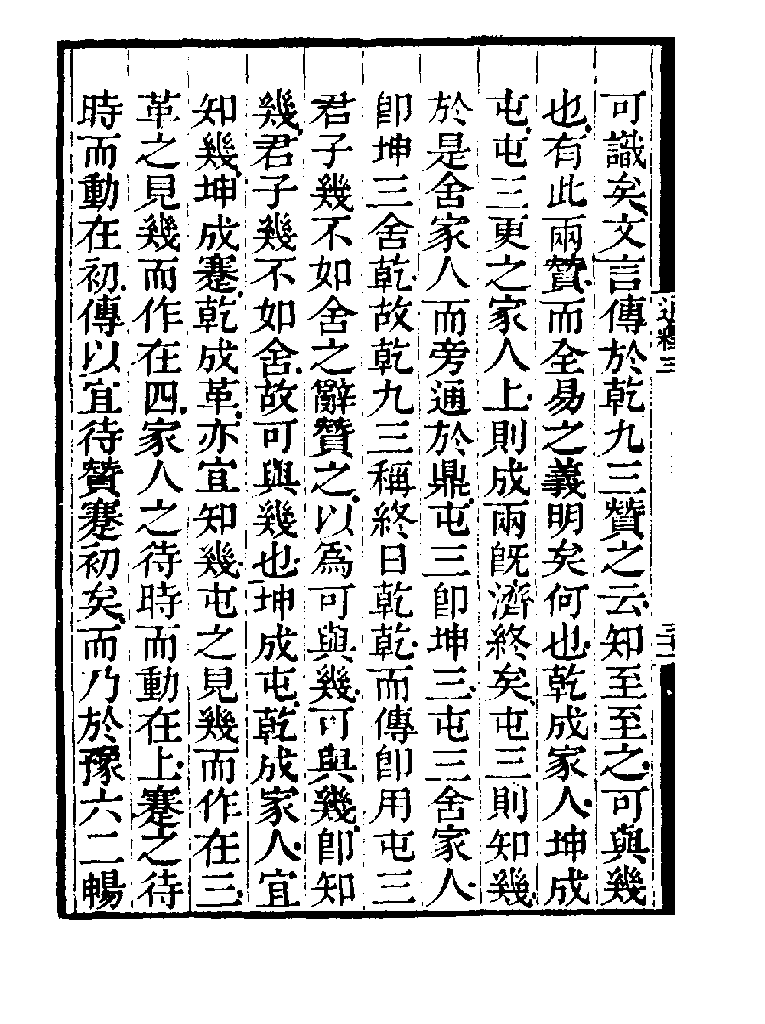 可識矣文言傳於乾九三贊之云知至至之可與幾
也有此兩贊而全易之義明矣何也乾成家人坤成
屯屯三更之家人上則成兩旣濟終矣屯三則知幾
於是舍家人而旁通於鼎屯三卽坤三屯三舍家人
卽坤三舍乾故乾九三稱終日乾乾而傳卽用屯三
君子幾不如舍之辭贊之以爲可與幾可與幾卽知
幾君子幾不如舍故可與幾也坤成屯乾成家人宜
知幾坤成蹇乾成革亦宜知幾屯之見幾而作在三
革之見幾而作在四家人之待時而動在上蹇之待
時而動在初傳以宜待贊蹇初矣而乃於豫六二暢